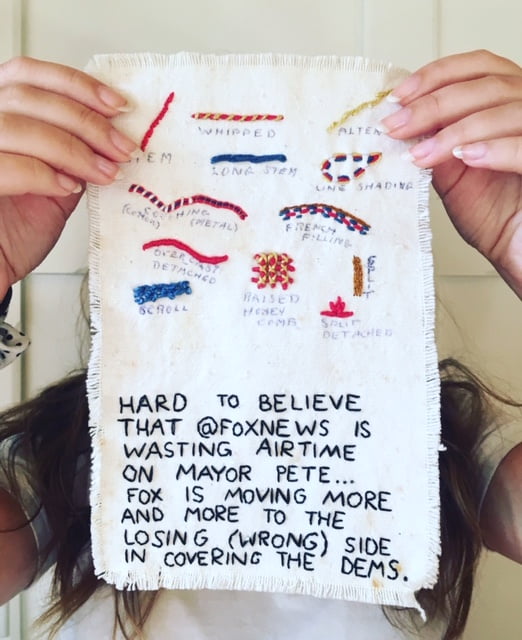 STEM
WHIPPED
LONG STEM
LINE SHADING
(COTTON) (METAL)
FRENCH
FILLING
OVERCAST
DETACHED
SCROLL
RAISED
HONEY
COMB
SPLIT
DETACHED
HARD TO BELIEVE
THAT @FOXNEWS IS
WASTING AIRTIME
ON MAYOR PETE...
FOX IS MOVING MORE
AND MORE TO THE
LOSING (WRONG) SIDE
IN COVERING THE DEMS.